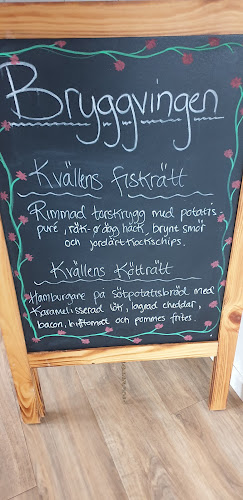 Bryggvingen
Kvällens fiskrätt
Rimmad torskrygg med potatis
puré, rök- o dag hack, brynt smör
och jordärtskockschips.
Kvällens Kötträtt
Hamburgare på sötpotatisbröd med
Karamelisserad lök, lagrad cheddar,
bacon, bifftomat och pommes frites.